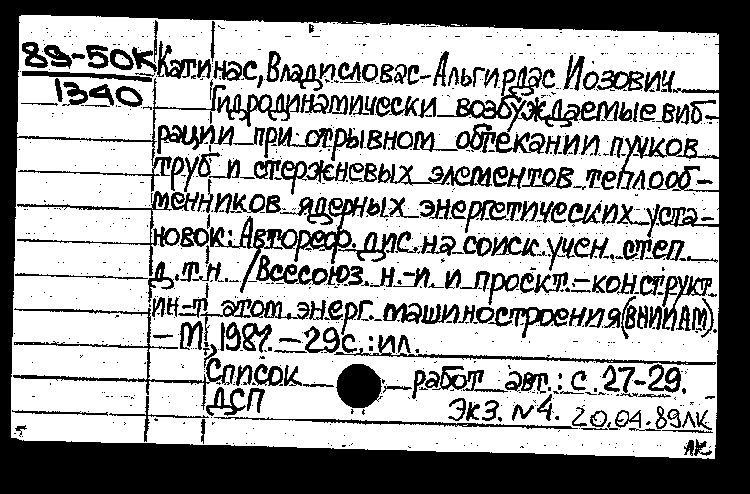 89-50К
1340
Катинас, Владисловас-Альгирдас Иозович
Гидродинамически возбуждаемые виб-
рации при отрывном обтекании пучков
труб и стержневых элементов теплооб-
менников ядерных энергетических уста-
новок: Автореф. дис. на соиск. учен. степ.
д.т.н. /Всесоюз. н.-и. и проект.-конструкт.
ин-т атом. энерг. машиностроения (ВНИИАМ).
– М., 1987. – 29с.: ил.
Список работ авт.: с. 27-29.
ДСП Экз. N4. 20.04.89 ЛК
ЛК